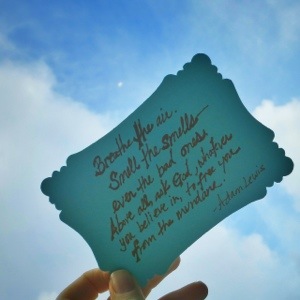 Breathe the air.
Smell the smells
even the bad ones
Above all ask God, whatever
you believe in, to free you
from the mundane.
- Adam Levine